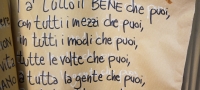 tutto il BENE che puoi,
con tutti i mezzi che puoi,
in tutti i modi che puoi,
tutte le volte che puoi,
a tutta la gente che puoi,